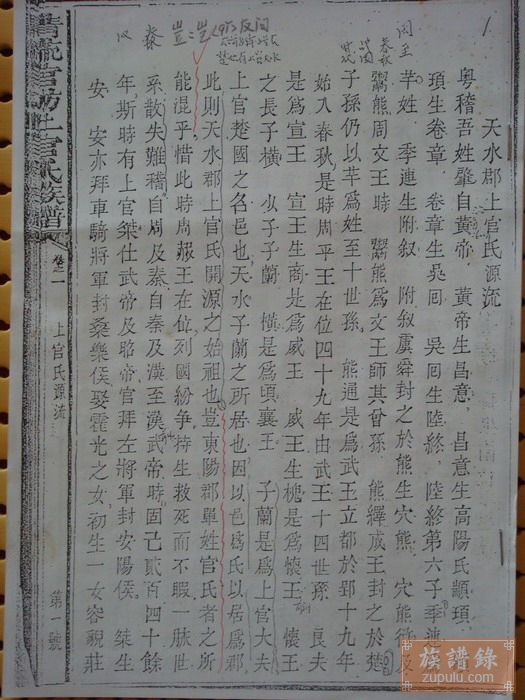 天水郡上官氏源流
粤稽吾姓肇自黃帝 黃帝生昌意 昌意生高陽氏顓頊
頊生卷章 卷章生吳回 吳回生陸終 陸終第六子季連
芊姓 季連生附叙 附叙虞舜封之於熊生穴熊 穴熊
鬻熊周文王時 鬻熊爲文王師其曾孫 熊繹成王封之於楚
子孫仍以芊爲姓至十世孫 熊通是爲武王立都於郢十九年
始入春秋是時周平王在位四十九年由武王十四世孫 良夫
是爲宣王 宣王生商是爲威王 威王生槐是爲懷王 懷王
之長子橫 少子子蘭 橫是爲頃襄王 子蘭是爲上官大夫
上官楚國之名邑也天水子蘭之所居也因以邑爲氏以居爲郡
此則天水郡上官氏開源之始祖也豈東陽郡單姓官氏者之所
能混乎惜此時周赧王在位列國紛爭持生救死而不暇一脉世
系散失難稽自周及秦自秦及漢至漢武帝時固已貳百四十餘
年斯時有上官桀仕武帝及昭帝官拜左將軍封安陽侯 桀生
安 安亦拜車騎將軍封桑樂侯娶霍光之女初生一女容親莊
上官氏族譜
卷之一
上官氏源流
第一號
1
族譜錄
www.zupulu.com